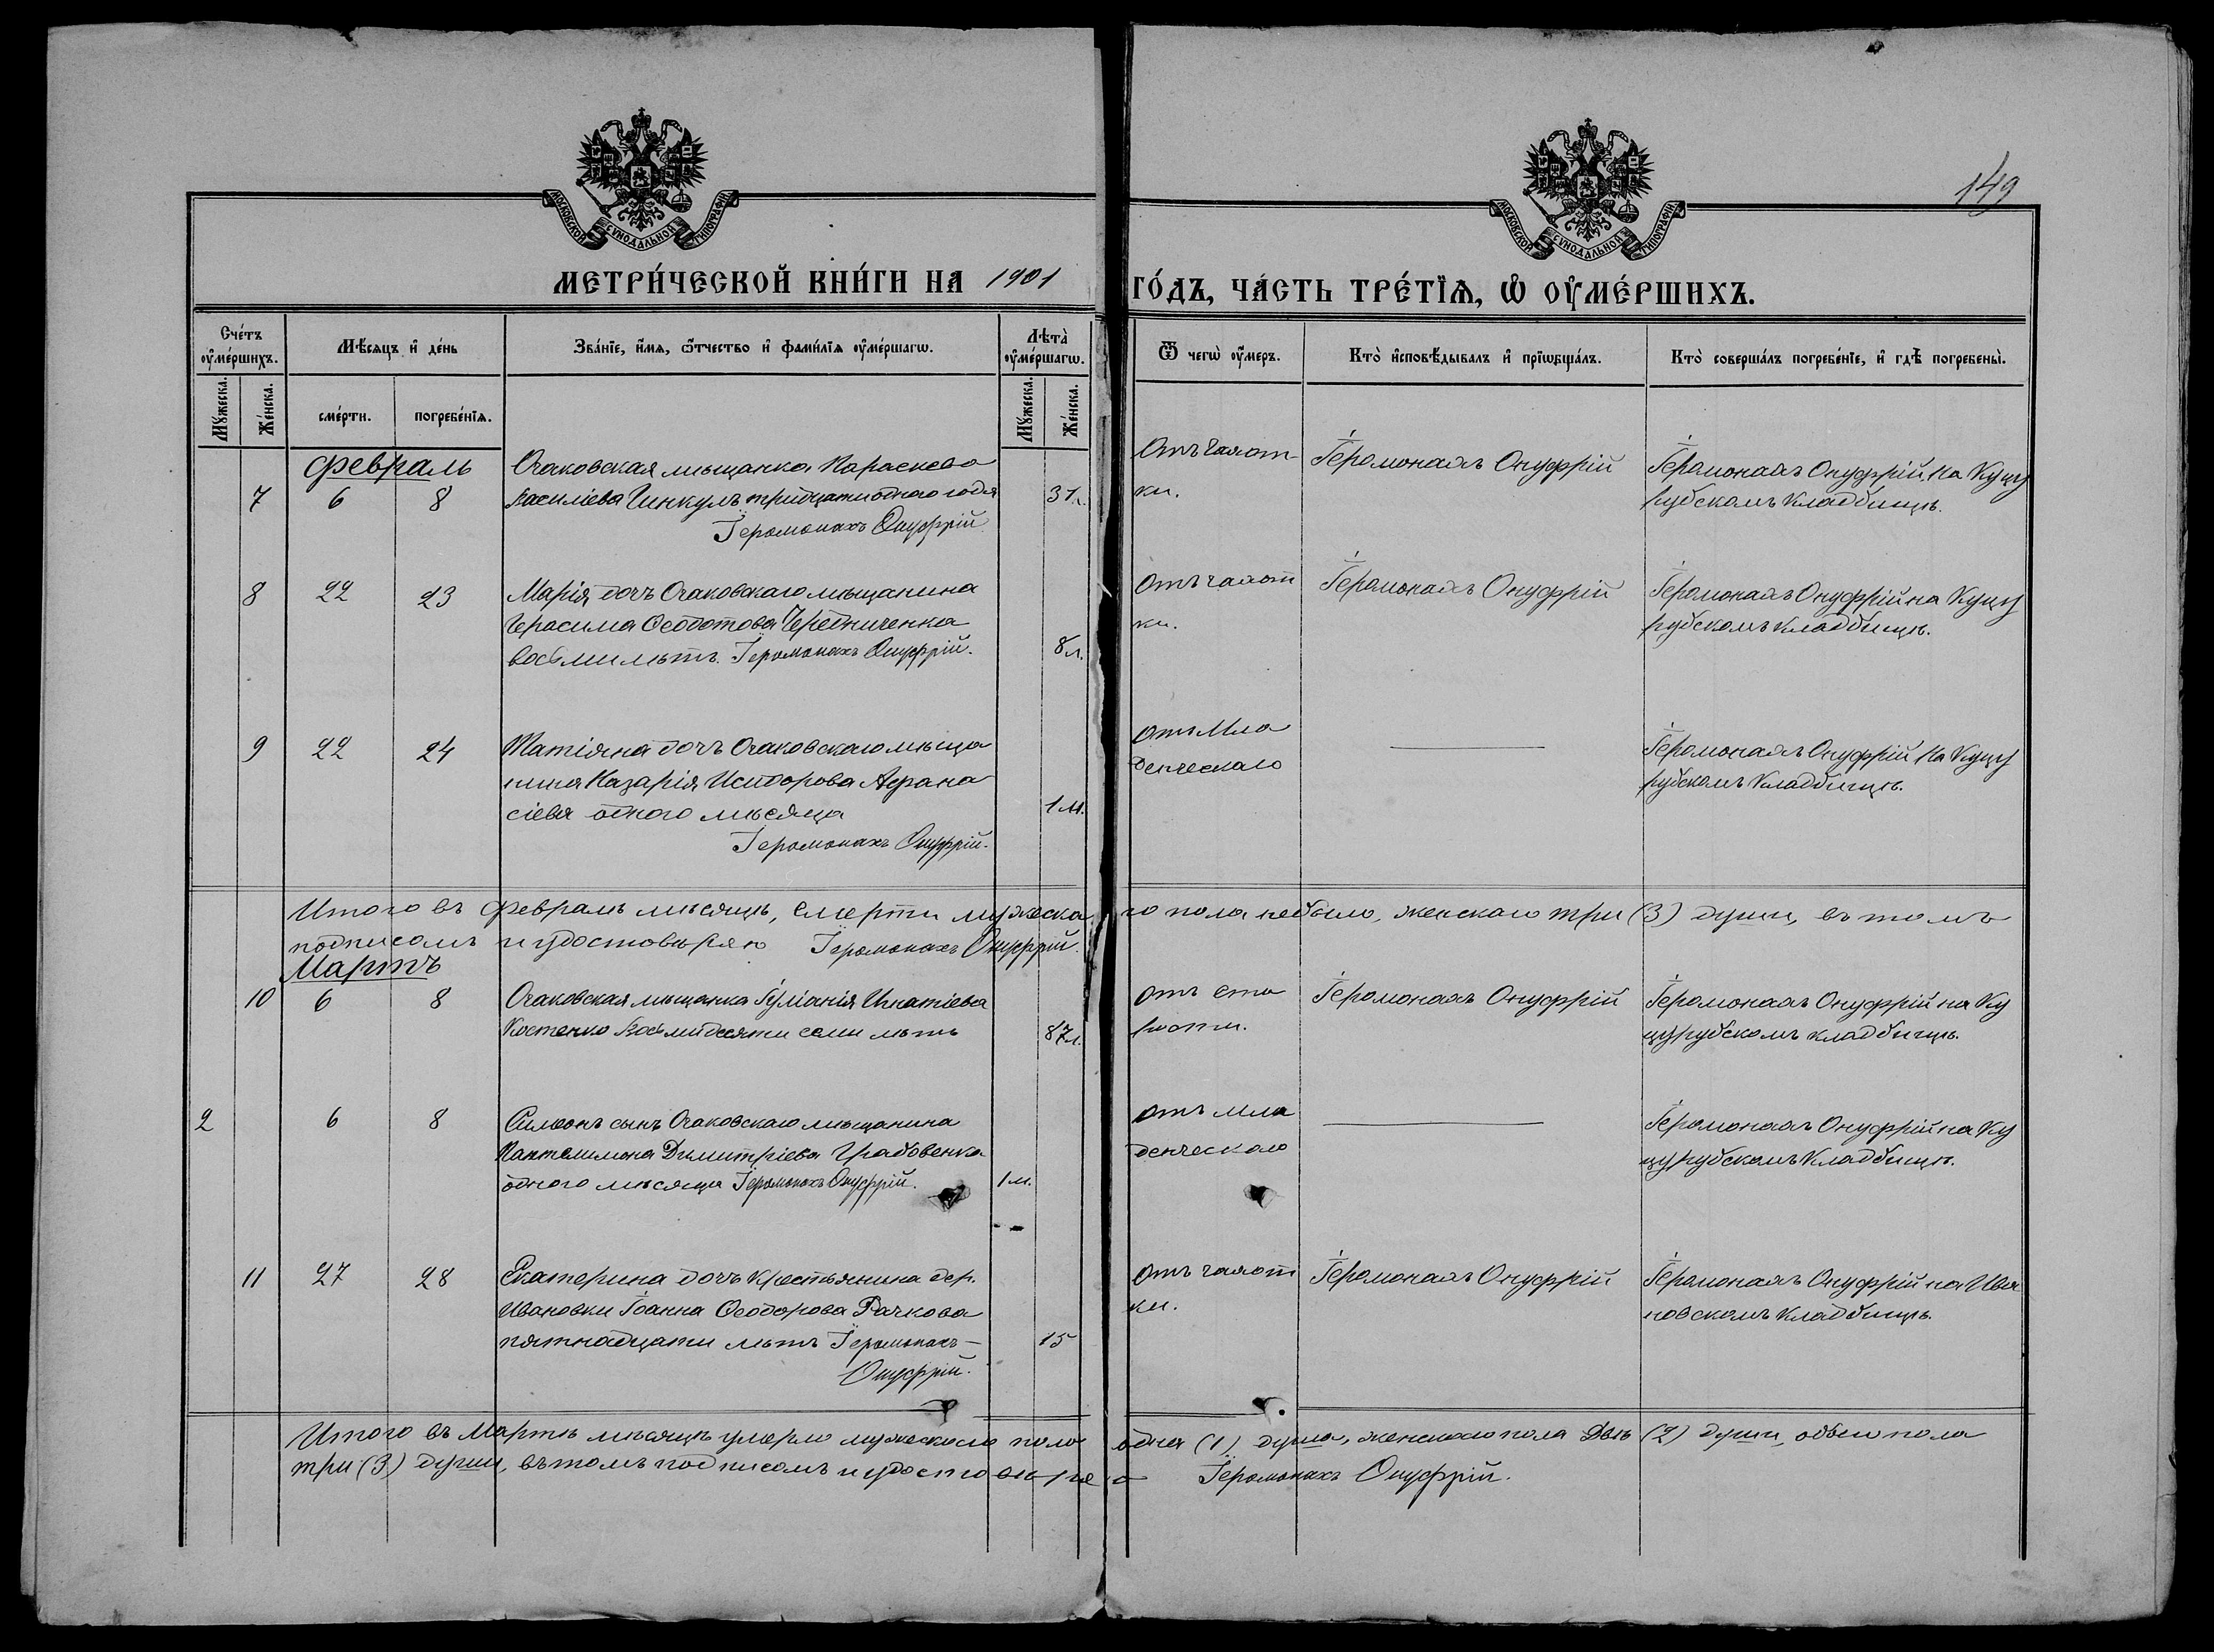 149
МОСКОВСКОЙ СѴНОДАЛЬНОЙ ТИПОГРАФІИ
МОСКОВСКОЙ СѴНОДАЛЬНОЙ ТИПОГРАФІИ
МЕТРИ́ЧЕСКОЙ КНИ́ГИ НА 1901 ГО́ДЪ, ЧА́СТЬ ТРЕ́ТЇѦ, Ѡ҆ ОУ҆МЕ́РШИХЪ.
Сче́тъ оу҆ме́ршихъ.
Мѣ́сяцъ и҆ де́нь
Зва́нїе, и҆́мѧ, ѻ҆́тчество и҆ фами́лїѧ оу҆ме́ршагѡ.
Лѣта̀ оу҆ме́ршагѡ.
Ѿ чегѡ̀ оу҆́меръ.
Кто̀ и҆сповѣ́дывалъ и҆ прїѡбща́лъ.
Кто̀ соверша́лъ погребе́нїе, и҆ гдѣ̀ погребены̀.
Мꙋ́жеска.
Же́нска.
сме́рти.
погребе́нїѧ.
Мꙋ́жеска.
Же́нска.
Февраль
7 6 8
Очаковская мѣщанка Параскева
Василіева Чинкулъ тридцати одного года 31л.
Іеромонахъ Онуфрій
Отъ чахот
ки.
Іеромонахъ Онуфрій
Іеромонахъ Онуфрій на Куцу
рубскомъ кладбищѣ.
8 22 23
Марія, дочь Очаковскаго мѣщанина
Герасима Ѳеодотова Чередниченка
восьми лѣтъ. Іеромонахъ Онуфрій. 8 л.
отъ чахот
ки.
Іеромонахъ Онуфрій
Іеромонахъ Онуфрій на Куцу
рубскомъ кладбищѣ.
9 22 24
Татіяна дочь Очаковскаго мѣща
нина Назарія Исидорова Афана
сіева одного мѣсяца 1 м.
Іеромонахъ Онуфрій.
отъ Мла
денческаго
Іеромонахъ Онуфрій на Куцу
рубскомъ кладбищѣ.
Итого въ Февралѣ мѣсяцѣ, смерти мужеска го пола небыло, женскаго три (3) души, въ томъ
подписомъ и удостовѣряю Іеромонахъ Онуфрій.
Мартъ
10 6 8
Очаковская мѣщанка Іуліанія Игнатіева
Костенко восьмидесяти семи лѣтъ 87л.
отъ ста
рости.
Іеромонахъ Онуфрій
Іеромонахъ Онуфрій на Ку
цурубскомъ кладбищѣ.
2 6 8
Симеонъ сынъ Очаковскаго мѣщанина
Пантелимона Димитріева Грабовенка
одного мѣсяца Іеромонахъ Онуфрій. 1 м.
отъ мла
денческаго
Іеромонахъ Онуфрій на Ку
цурубскомъ кладбищѣ.
11 27 28
Екатерина дочь крестьянина дер.
Ивановки Іоанна Ѳеодорова Рачкова
пятнадцати лѣтъ Іеромонахъ 15
Онуфрій.
Отъ чахот
ки.
Іеромонахъ Онуфрій
Іеромонахъ Онуфрій на Ива
новскомъ кладбищѣ.
Итого въ Мартѣ мѣсяцѣ умерло мужескаго пола одна (1) душа, женскаго пола двѣ (2) души, обоего пола
три (3) души, въ томъ подписомъ и удостовѣряю Іеромонахъ Онуфрій.